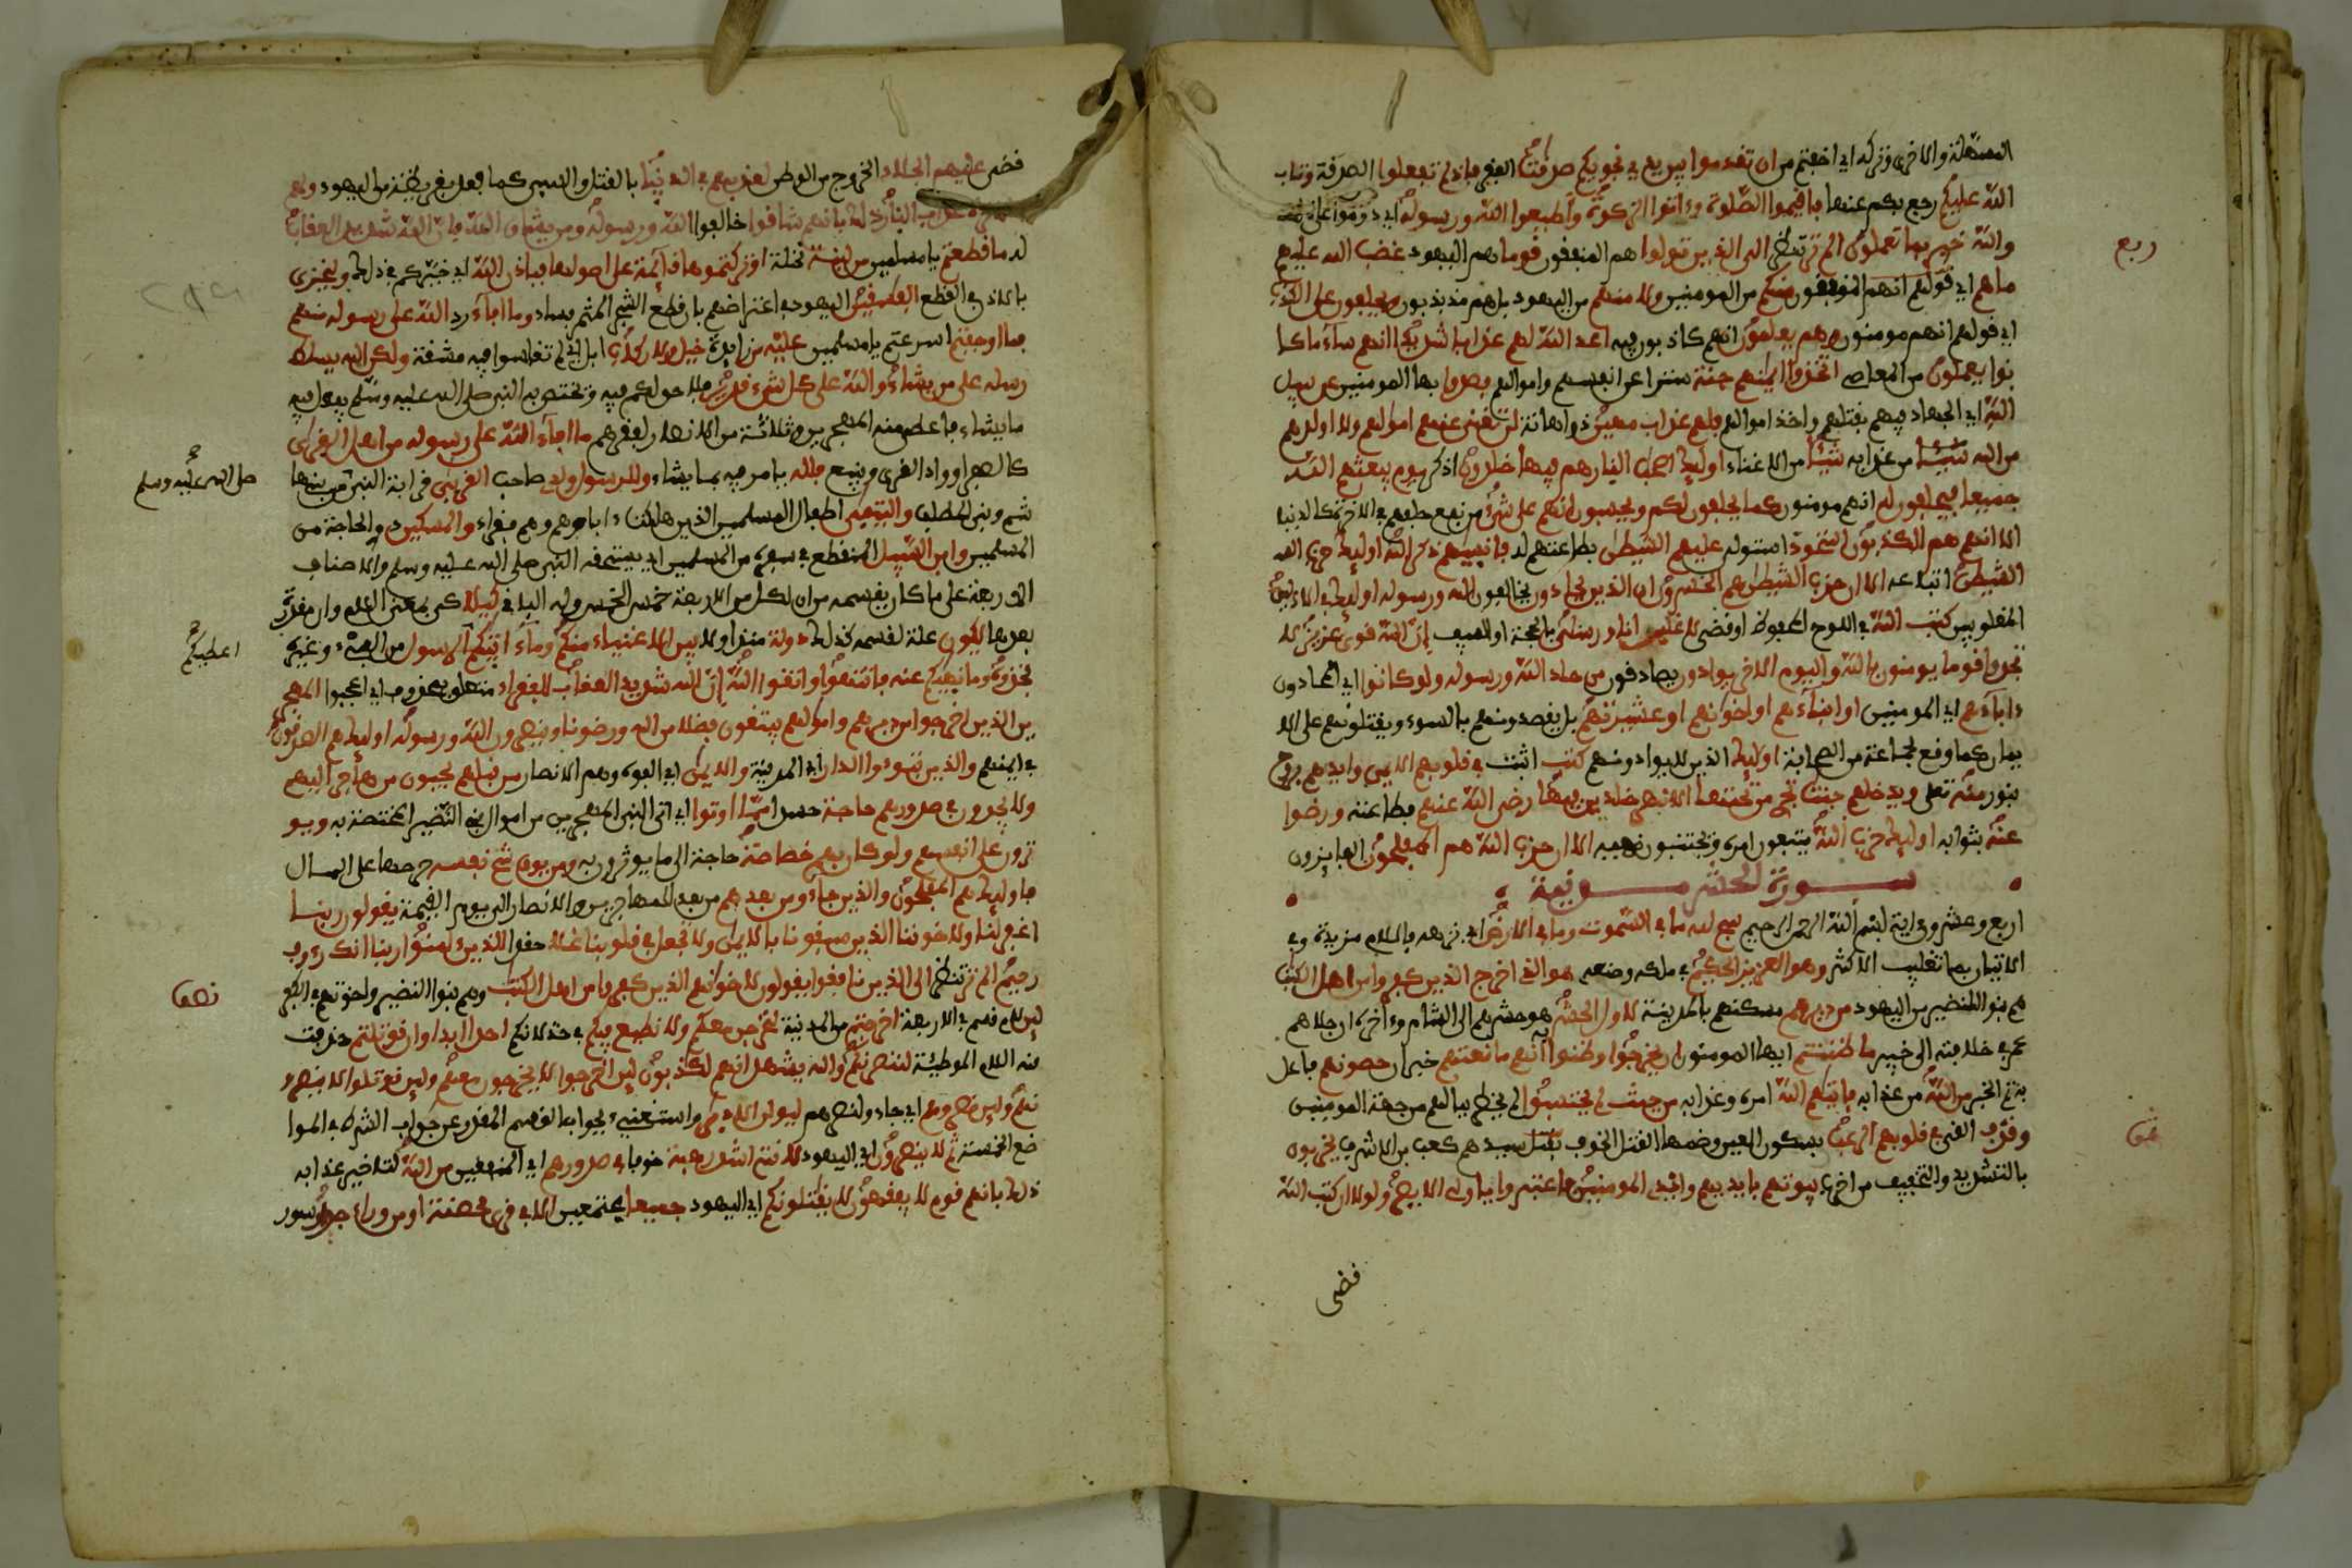 المسهلة والاخرى وتركه اي اخفتم من ان تقدموا بين يدي نجويكم صدقت الفقر فإذ لم تفعلوا الصدقة وتاب
الله عليكم رجع بكم عنها فاقيموا الصلوة وءاتوا الزكوة وأطيعوا الله ورسوله اي دوموا على ذلك
والله خبير بما تعملون الم تر تنظر الى الذين تولوا هم المنفقون قوما هم اليهود غضب الله عليهم
ما هم اي قولهم انهم المنفقون منكم من المومنين ولا منهم من اليهود بل هم مذبذبون ويحلفون على الكذب
اي قولهم انهم مومنون وهم يعلمون انهم كاذبون فيه اعد الله لهم عذابا شديدا انهم ساء ما كا
نوا يعملون من المعاصي اتخذوا ايمنهم جنة سترا عن انفسهم واموالهم فصدوا بها المومنين عن سبيل
الله اي الجهاد فيهم بقتلهم واخذ اموالهم فلهم عذاب مهين ذو اهانة لن تغني عنهم اموالهم ولا اولدهم
من الله شيئا من عذابه شيئا من الاغناء اوليك اصحب النار هم فيها خلدون اذكر يوم يبعثهم الله
جميعا فيحلفون له انهم مومنون كما يحلفون لكم ويحسبون انهم على شيء من نفع حلفهم في الاخرة كالدنيا
الا انهم هم الكذبون استحوذ استولى عليهم الشيطن بطاعتهم له فانسيهم ذكر الله اوليك حزب
الشيطن اتباعه الا ان حزب الشيطن هم الخسرون ان الذين يحادون يخالفون الله ورسوله اوليك في الاذلين
المغلوبين كتب الله في اللوح المحفوظ او قضى لاغلبن انا ورسلي بالحجة او السيف إن الله قوي عزيز لا
تجد قوما يومنون بالله واليوم الاخر يوادون يصادقون من حاد الله ورسوله ولو كانوا اي المحادون
ءاباءهم اي المومنين او ابناءهم او اخوانهم او عشيرتهم بل يقصدونهم بالسوء ويقتلونهم على الا
يمان كما وقع لجماعة من الصحابة اوليك الذين لا يوادونهم كتب اثبت في قلوبهم الايمن وايدهم بروح
بنور منه تعلى ويدخلهم جنت تجري من تحتها الانهر خلدين فيها رضي الله عنهم بطاعته ورضوا
عنه بثوابه اوليك حزب الله يتبعون امره ويجتنبون نهيه الا ان حزب الله هم المفلحون الفايزون
سورة الحشر مدنية
اربع وعشرون اية بسم الله الرحمن الرحيم سبح لله ما في السموت وما في الارض اي نزهه فاللام مزيدة وفي
الاتيان بما تغليب الاكثر وهو العزيز الحكيم في ملكه وصنعه هو الذي اخرج الذين كفروا من اهل الكتب
هم بنو النضير من اليهود من ديرهم مسكنهم بالمدينة لاول الحشر هو حشرهم الى الشام وءاخره ان جلاهم
عمر في خلافته الى خيبر ما ظننتم ايها المومنون ان يخرجوا وظنوا أنهم مانعتهم خبر ان حصونهم فاعل
به تم الخبر من الله من عذابه فاتيهم الله امره وعذابه من حيث لم يحتسبوا لم يخطر ببالهم من جهة المومنين
وقذف القى في قلوبهم الرعب بسكون العين وضمها القتل الخوف بقتل سيدهم كعب بن الاشرف يخربون
بالتشديد والتخفيف من اخرب بيوتهم بايديهم وايدي المومنين فاعتبروا ياولي الابصر ولولا ان كتب الله
قضى
ربع
قضى عليهم الجلاء الخروج من الوطن لعذبهم في الدنيا بالقتل والسبي كما فعل بقريظة من اليهود ولهم
عذاب النار ذلك بانهم شاقوا خالفوا الله ورسوله ومن يشاق الله فان الله شديد العقاب
له ما قطعتم يا مسلمين من لينة نخلة او تركتموها قايمة على اصولها فباذن الله اي خيركم في ذلك وليخزي
بالاذن في القطع الفسقين اليهود في اعتراضهم بان قطع الشجر المثمر فساد وما افاء رد الله على رسوله منهم
فما اوجفتم اسرعتم يا مسلمين عليه من زايدة خيل ولا ركاب ابل اي لم تقاسوا فيه مشقة ولكن الله يسلط
رسله على من يشاء والله على كل شيء قدير فلا حق لكم فيه ويختص به النبي صلى الله عليه وسلم يفعل فيه
ما يشاء فاعطى منه المهجرين وثلاثة من الانصار لفقرهم ما افاء الله على رسوله من اهل القرى
كالصفرا وواد القرى وينبع فلله يامر فيه بما يشاء وللرسول ولذي صاحب القربى قرابة النبي من بني ها
شم وبني المطلب واليتمى اطفال المسلمين الذين هلكت ءاباوهم وهم فقراء والمسكين ذوي الحاجة من
المسلمين وابن السبيل المنقطع في سفره من المسلمين اي يستحقه النبي صلى الله عليه وسلم والاصناف
الاربعة على ما كان يقسمه من ان لكل من الاربعة خمس الخمس وله الباقي كيلا كي بمعنى اللام وان مقدرة
بعدها يكون علة لقسمه كذلك دولة متداولا بين الاغنياء منكم وما ءاتيكم الرسول من الفيء وغيره
فخذوه وما نهيكم عنه فانتهوا واتقوا الله إن الله شديد العقاب للفقراء متعلق بمحذوف اي اعجبوا المهجر
ين الذين اخرجوا من ديرهم واموالهم يبتغون فضلا من الله ورضونا وينصرون الله ورسوله اوليك هم الصدقون
في ايمنهم والذين تبوءوا الدار اي المدينة والايمن اي الفوه وهم الانصار من قبلهم يحبون من هاجر اليهم
ولا يجدون في صدورهم حاجة حسدا مما اوتوا اي اتى النبي المهجرين من اموال بني النضير المختصة به ويو
ثرون على انفسهم ولو كان بهم خصاصة حاجة الى ما يوثرون به ومن يوق شح نفسه حرصها على المال
فاوليك هم المفلحون والذين جاءو من بعدهم من بعد المهاجرين والانصار الى يوم القيمة يقولون ربنا
اغفر لنا ولاخوننا الذين سبقونا بالايمن ولا تجعل في قلوبنا غلا حقدا للذين ءامنوا ربنا انك رءوف
رحيم الم تر تنظر الى الذين نافقوا يقولون لاخونهم الذين كفروا من اهل الكتب وهم بنو النضير واخوتهم في الكفر
لين لام قسم في الاربعة اخرجتم من المدينة لنخرجن معكم ولا نطيع فيكم في خذلانكم احدا ابدا وان قوتلتم حذفت
منه اللام الموطية لننصرنكم والله يشهد انهم لكذبون لين اخرجوا لا يخرجون معهم ولين قوتلوا لا ينصرو
نهم ولين نصروهم اي جاءو لنصرهم ليولن الادبر واستغني بجواب القسم المقدر عن جواب الشرط في الموا
ضع الخمسة ثم لا ينصرون اي اليهود لانتم اشد رهبة خوفا في صدورهم اي المنفقين من الله لتاخير عذابه
ذلك بانهم قوم لا يفقهون لا يقتلونكم اي اليهود جميعا مجتمعين الا في قرى محصنة او من وراء جدر سور
صلى الله عليه وسلم
اعطيكم